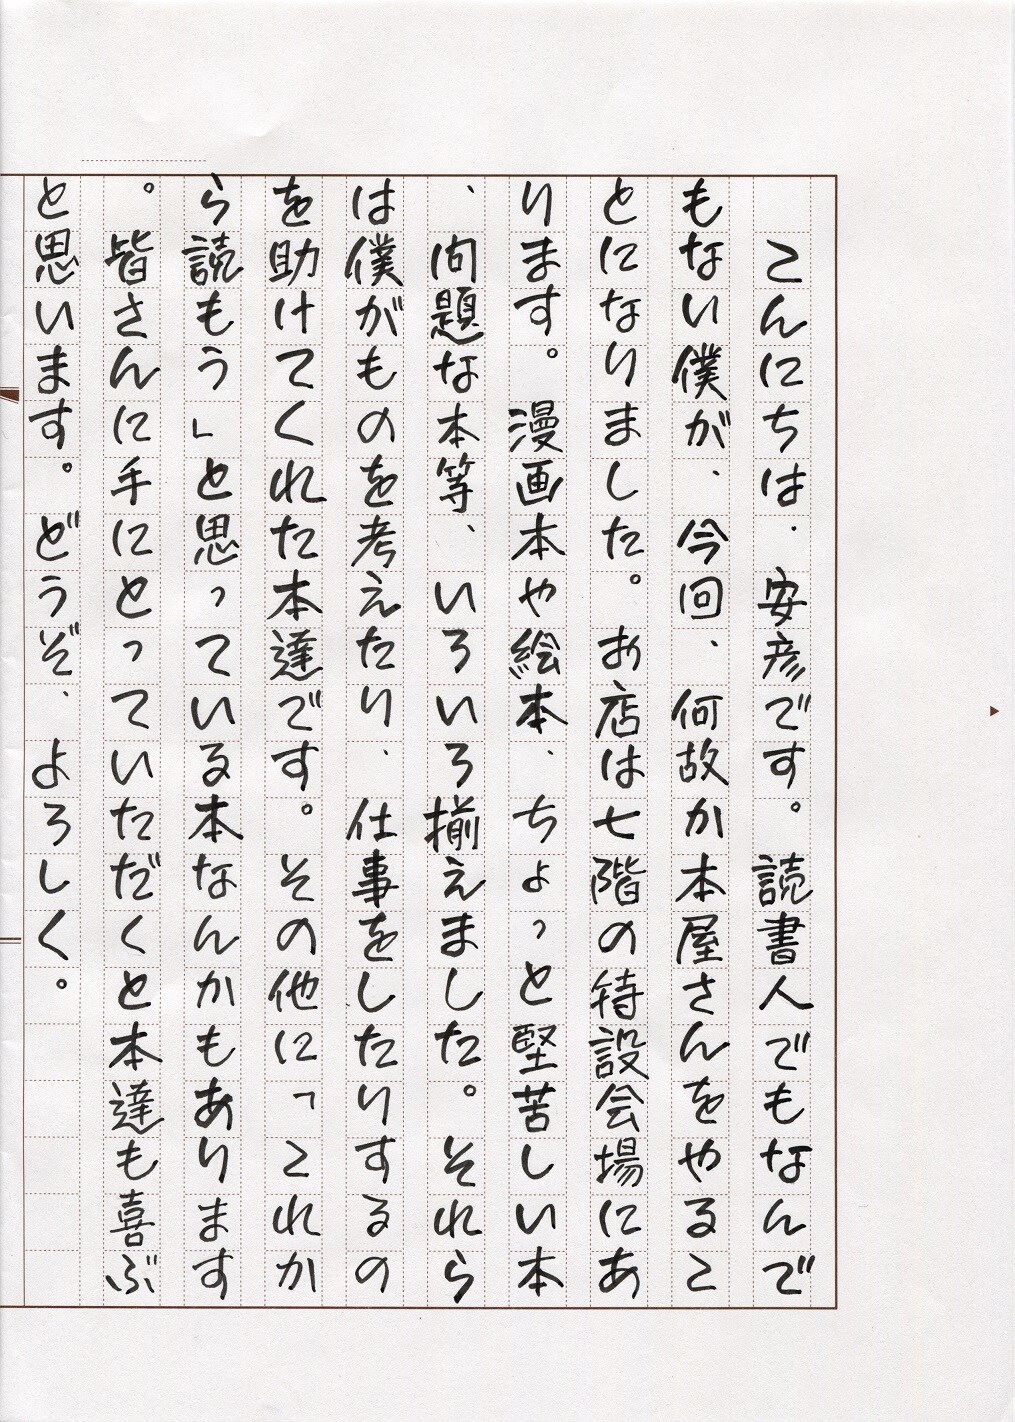 こんにちは、安彦です。読書人でもなんで
もない僕が、今回、何故か本屋さんをやるこ
とになりました。お店は七階の特設会場にあ
ります。漫画本や絵本、ちょっと堅苦しい本
、問題な本等、いろいろ揃えました。それら
は僕がものを考えたり、仕事をしたりするの
を助けてくれた本達です。その他に「これか
ら読もう」と思っている本なんかもあります
。皆さんに手にとっていただくと本達も喜ぶ
と思います。どうぞ、よろしく。